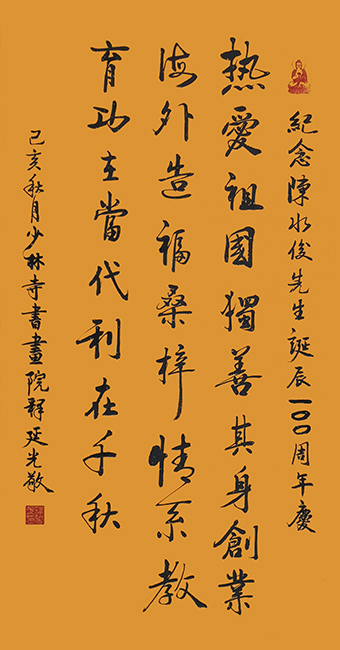 紀念陳水俊先生誕辰100周年慶
热愛祖國獨善其身創業
海外造福桑梓情系教
育功在當代利在千秋
己亥秋月少林寺書畫院釋延光敬